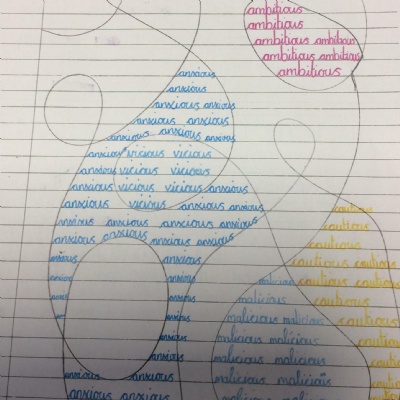 ambitious
ambitious
ambitious ambitious
ambitious ambitious
ambitious
anxious
anxious
anxious anxious
anxious anxious
anxious anxious anxious
anxious vicious vicious
anxious vicious vicious
anxious vicious vicious anxious
anxious vicious anxious anxious cautious
anxious anxious anxious anxious cautious
anxious anxious anxious anxious cautious
anxious cautious cautious
anxious anxious malicious cautious cautious
anxious malicious cautious
anxious malicious malicious cautious
anxious malicious malicious cautious
anxious malicious malicious cautious
anxious anxious malicious malicious cautious
anxious anxious malicious malicious